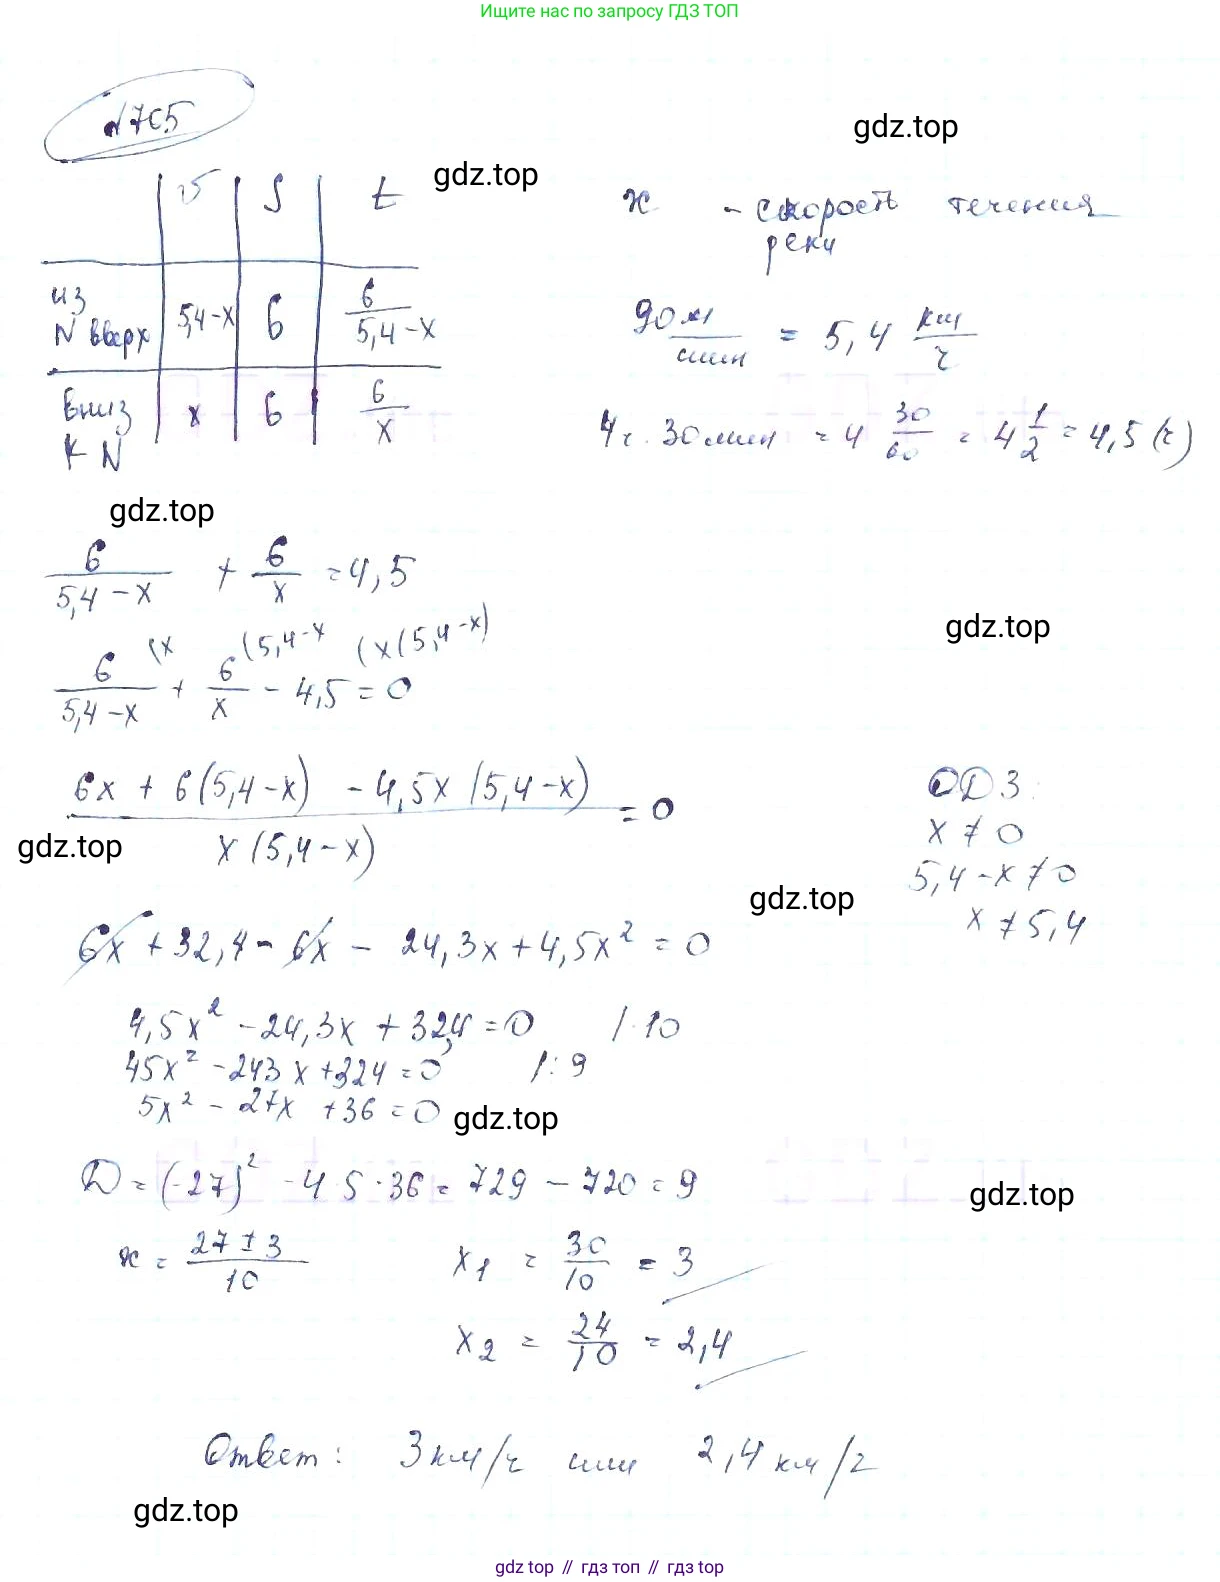 Ищите нас по запросу ГДЗ ТОП
№765
gdz.top
gdz.top
v S t
x - скорость течения
реки
из
N вверх 5,4-x 6 6/(5,4-x)
90 м/мин = 5,4 км/ч
вниз
к N x 6 6/x
4 ч. 30 мин = 4 30/60 = 4 1/2 = 4,5 (ч)
gdz.top
6/(5,4-x) + 6/x = 4,5
gdz.top
(x (5,4-x (x(5,4-x)
6/(5,4-x) + 6/x - 4,5 = 0
(6x + 6(5,4-x) - 4,5x(5,4-x))/(x(5,4-x)) = 0
ОДЗ:
x ≠ 0
5,4-x ≠ 0
x ≠ 5,4
gdz.top
gdz.top
6x + 32,4 - 6x - 24,3x + 4,5x² = 0
4,5x² - 24,3x + 32,4 = 0 /·10
45x² - 243x + 324 = 0 /:9
5x² - 27x + 36 = 0
gdz.top
D = (-27)² - 4·5·36 = 729 - 720 = 9
gdz.top
x = (27±3)/10 x₁ = 30/10 = 3
x₂ = 24/10 = 2,4
Ответ: 3 км/ч или 2,4 км/ч
gdz.top
gdz top // гдз топ // гдз top